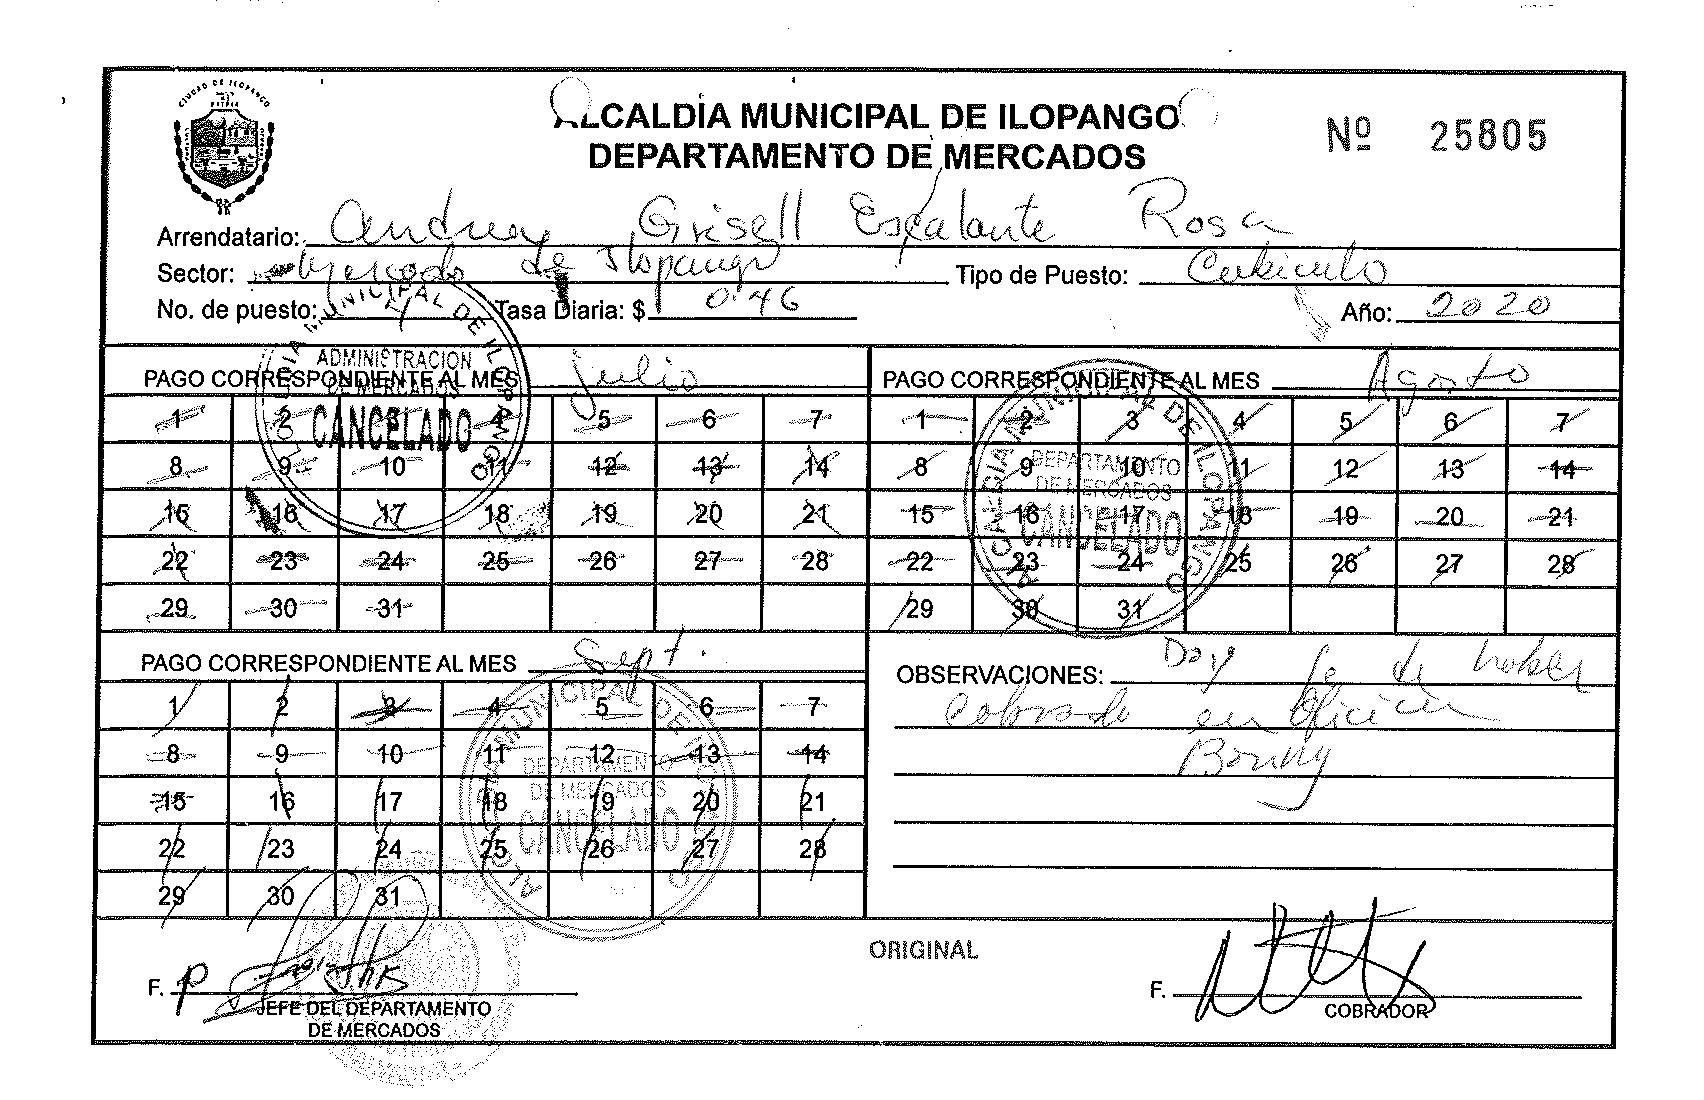 CIUDAD DE ILOPANGO
ALCALDÍA MUNICIPAL DE ILOPANGO
DEPARTAMENTO DE MERCADOS
Nº 25805
Arrendatario: Andrea Grisell Escalante Rosa
Sector: Mercado de Ilopango Tipo de Puesto: Cubiculo
No. de puesto: Tasa Diaria: $ 0.46 Año: 2020
PAGO CORRESPONDIENTE AL MES Julio
1 2 3 4 5 6 7
8 9 10 11 12 13 14
15 16 17 18 19 20 21
22 23 24 25 26 27 28
29 30 31
ALCALDIA MUNICIPAL DE ILOPANGO
ADMINISTRACION
DE MERCADOS
CANCELADO
PAGO CORRESPONDIENTE AL MES Agosto
1 2 3 4 5 6 7
8 9 10 11 12 13 14
15 16 17 18 19 20 21
22 23 24 25 26 27 28
29 30 31
ALCALDIA MUNICIPAL DE ILOPANGO
DEPARTAMENTO
DE MERCADOS
CANCELADO
PAGO CORRESPONDIENTE AL MES Sept.
1 2 3 4 5 6 7
8 9 10 11 12 13 14
15 16 17 18 19 20 21
22 23 24 25 26 27 28
29 30 31
ALCALDIA MUNICIPAL DE ILOPANGO
DEPARTAMENTO
DE MERCADOS
CANCELADO
OBSERVACIONES: Doy fe de haber
Cobrado en Oficina
ORIGINAL
F. P
JEFE DEL DEPARTAMENTO
DE MERCADOS
F.
COBRADOR